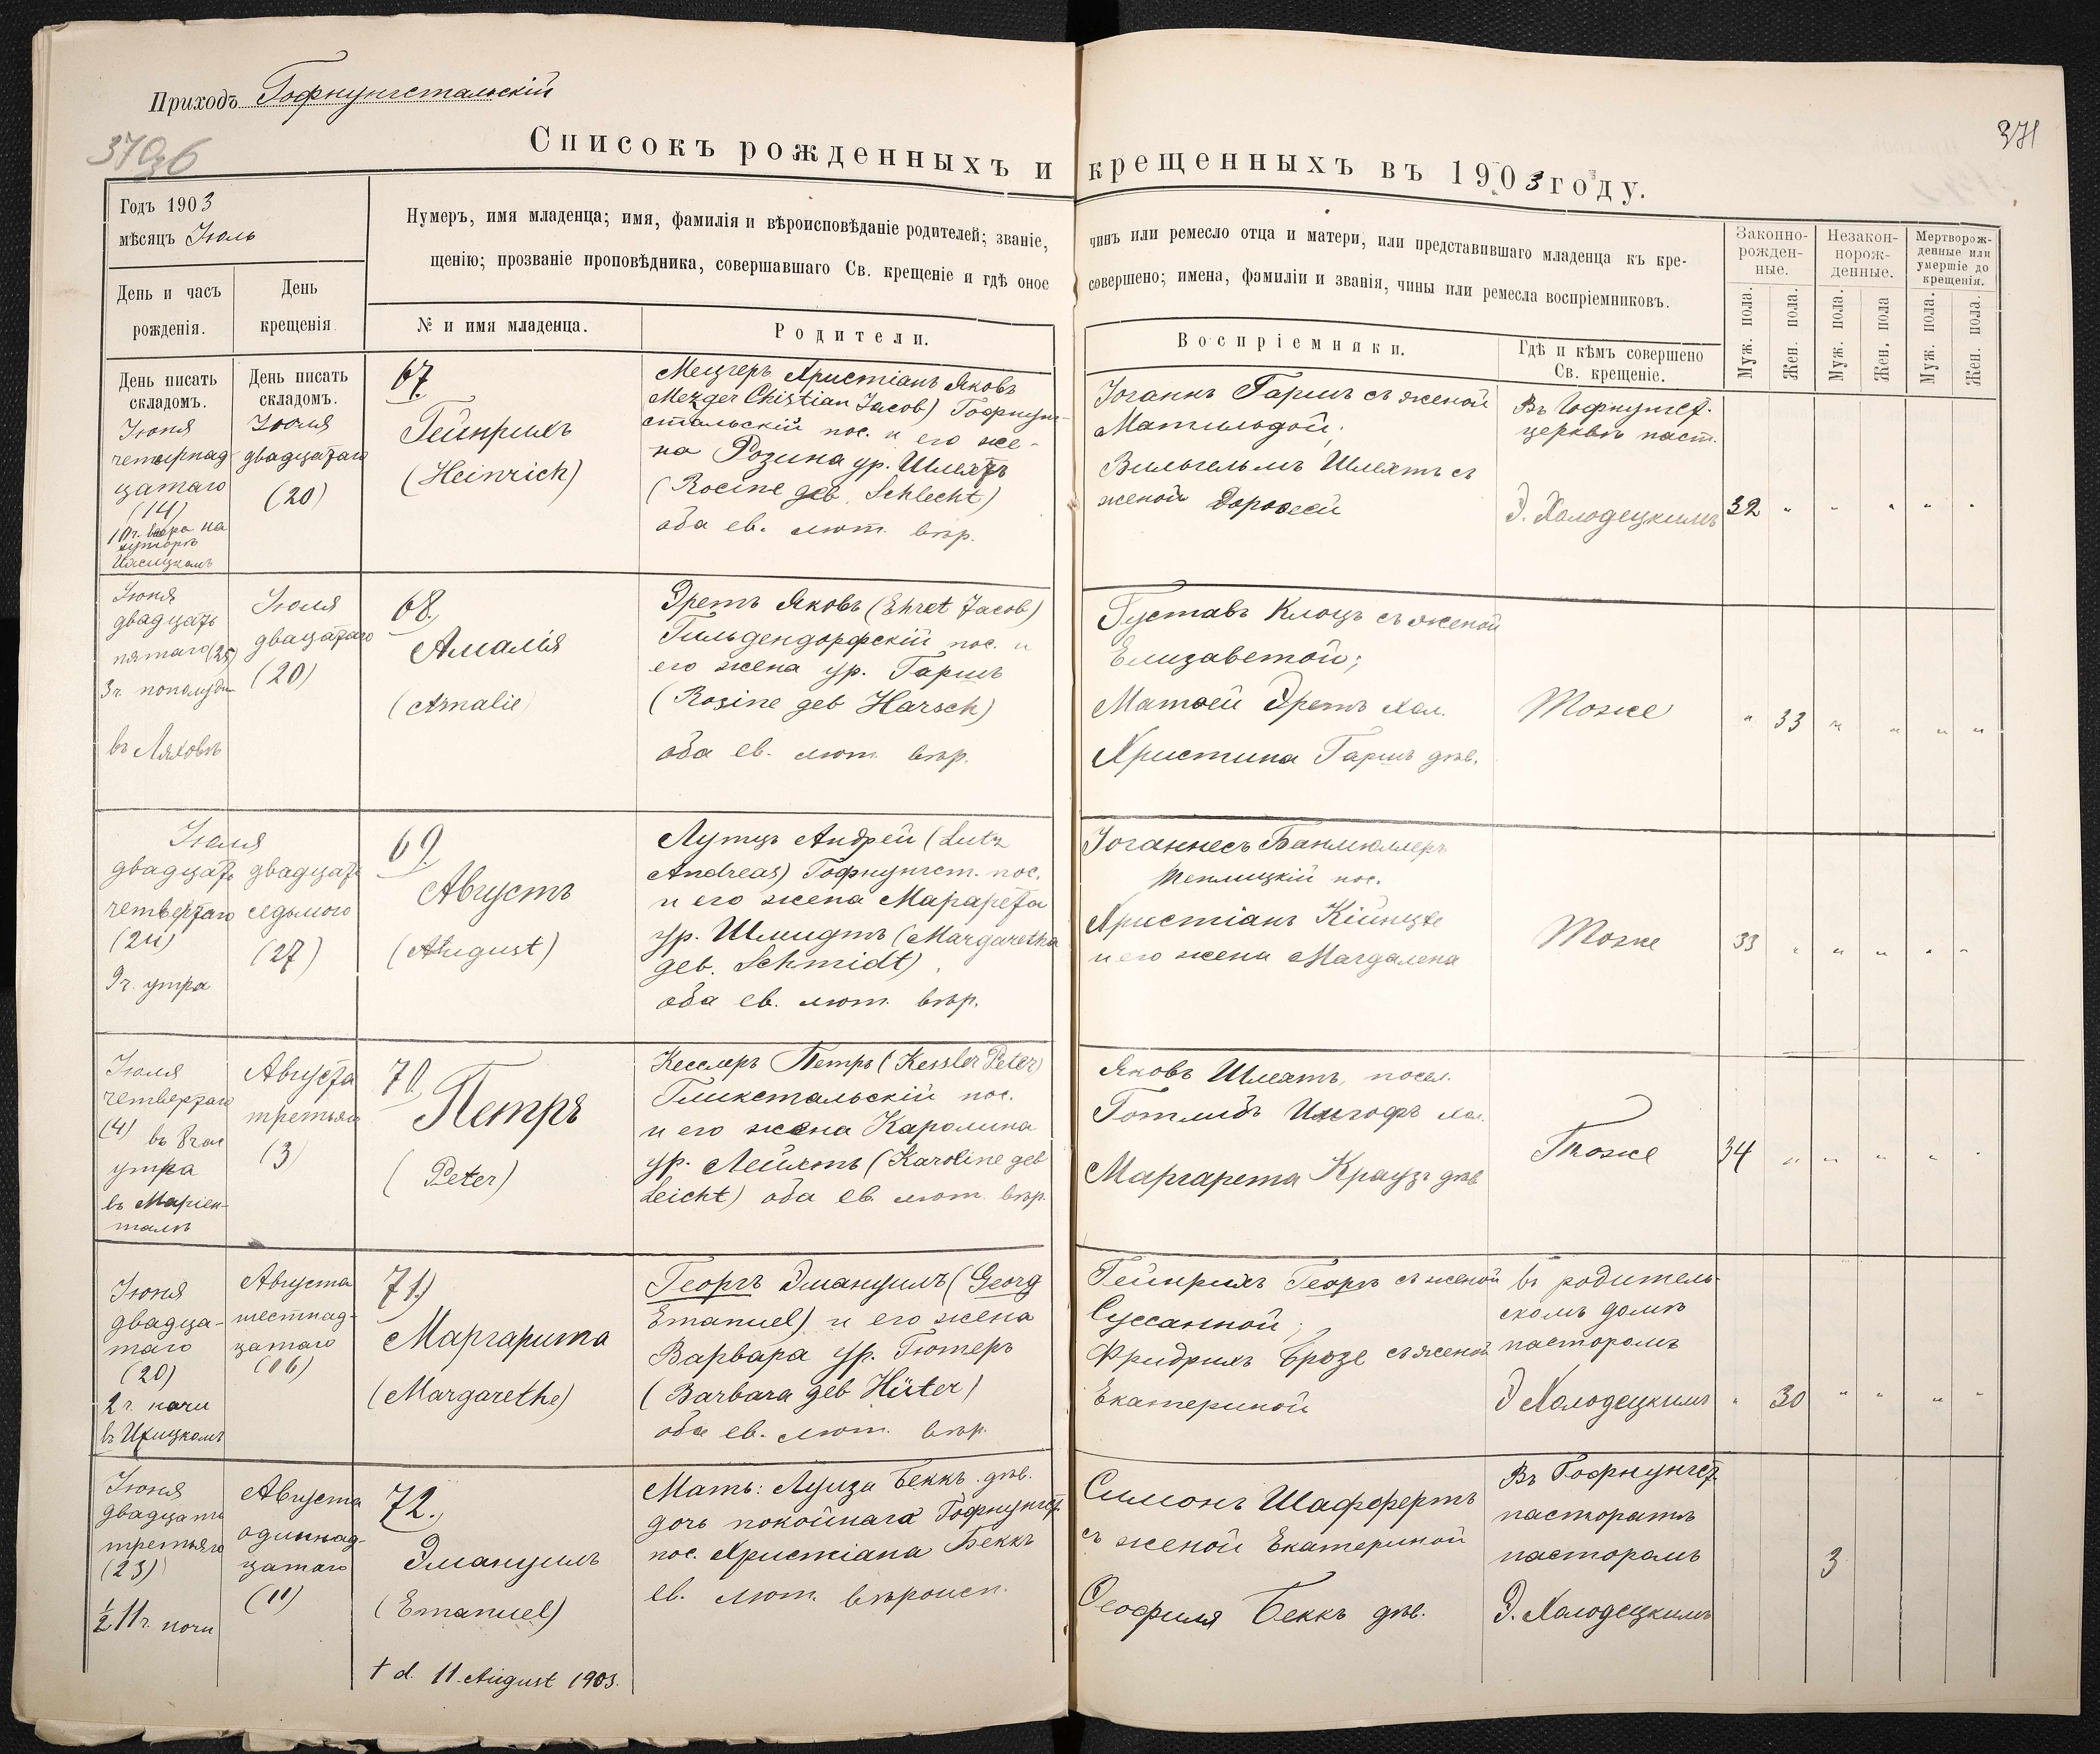 Приходъ Гофнунгстальскій
370об
371
Списокъ рожденныхъ и крещенныхъ въ 1903 году.
Годъ 1903
мѣсяцъ Іюль
Нумеръ, имя младенца; имя, фамилія и вѣроисповѣданіе родителей; званіе, чинъ или ремесло отца и матери, или представившаго младенца къ кре-
щенію; прозваніе проповѣдника, совершавшаго Св. крещеніе и гдѣ оное совершено; имена, фамиліи и званія, чины или ремесла воспріемниковъ.
Законно-
рожден-
ные.
Незакон-
норож-
денные.
Мертворож-
денные или
умершіе до
крещенія.
День и часъ
рожденія.
День
крещенія
№ и имя младенца.
Родители.
Воспріемники.
Гдѣ и кѣмъ совершено
Св. крещеніе.
Муж. пола.
Жен. пола.
Муж. пола.
Жен. пола
Муж. пола.
Жен. пола.
День писать
складомъ.
День писать
складомъ.
Іюня
четырнад
цатаго
(14)
10 ч. вечера на
хуторѣ
Іюля
двадцатаго
(20)
67.
Гейнрихъ
(Heinrich)
Мецгеръ Христіанъ Яковъ
Mezger Chistian Jacob) Гофнунг-
стальскій пос. и его же-
на Розина ур. Шлехтъ
(Rocine geb. Schlecht)
оба ев. лют. вѣр.
Іоганнъ Гаршъ съ женой
Матильдой;
Вильгельмъ Шлехтъ съ
женой Доротеей
Въ Гофнунгст.
церкви паст.
Э. Холодецкимъ
32 " " " " "
Іюня
двадцать
пятаго (25)
3 ч. пополудни
въ Ляховѣ
Іюля
двацатаго
(20)
68.
Амалія
(Amalie)
Эретъ Яковъ (Ehret Jacob)
Гильдендорфскій пос. и
его жена ур. Гаршъ
(Rosine geb Harsch)
оба ев. лют. вѣр.
Густавъ Клоцъ съ женой
Елизаветой;
Матѳей Эретъ хол.
Христина Гаршъ дѣв.
Тоже
" 33 " " " "
Іюля
двадцать
четвертаго
(24)
9 ч. утра
двадцать
седьмого
(27)
69.
Августъ
(August)
Лутцъ Андрей (Lutz
Andreas) Гофнунгст. пос.
и его жена Марарета
ур. Шмидтъ (Margaretha
geb. Schmidt)
оба ев. лют. вѣр.
Іоганнесъ Банмюллеръ
Теплицкій пос.
Христіанъ Кійнцле
и его жена Магдалена
Тоже
33 " " " " "
Іюля
четвертаго
(4) въ 8 час
утра
въ Маріен-
талѣ
Августа
третьяго
(3)
70.
Петръ
(Peter)
Кесслеръ Петръ (Kessler Peter)
Гликстальскій пос.
и его жена Каролина
ур. Лейхтъ (Karoline geb
Leicht) оба ев. лют. вѣр.
Яковъ Шлехтъ, посел.
Готлибъ Имгофъ хол.
Маргарета Краузъ дѣв
Тоже
34 " " " " "
Іюня
двадца-
таго
(20)
2 ч. ночи
Августа
шестнад-
цатаго
(16)
71.)
Маргарита
(Margarethe)
Георгъ Эмануилъ (Georg
Emanuel) и его жена
Варвара ур. Гютеръ
(Barbara geb Hüter)
оба ев. лют. вѣр.
Гейнрихъ Георгъ съ женой
Суссанной;
Фридрихъ Брозе съ женой
Екатериной
въ родитель-
скомъ домѣ
пасторомъ
Э Холодецкимъ
" 30 " " "  "
Іюня
двадцать
третьяго
(23)
½ 11 ч. ночи
Августа
одиннад-
цатаго
(11)
72.
Эмануилъ
(Emanuel)
† d. 11. August 1903.
Мать: Луиза Беккъ дѣв.
дочь покойнаго Гофнунгст
пос. Христіана Беккъ
ев. лют. вѣроисп.
Симонъ Шаффертъ
съ женой Екатериной
Ѳеофиля Беккъ дѣв.
Въ Гофнунгст
пасторатѣ
пасторомъ
Э. Холодецкимъ
3